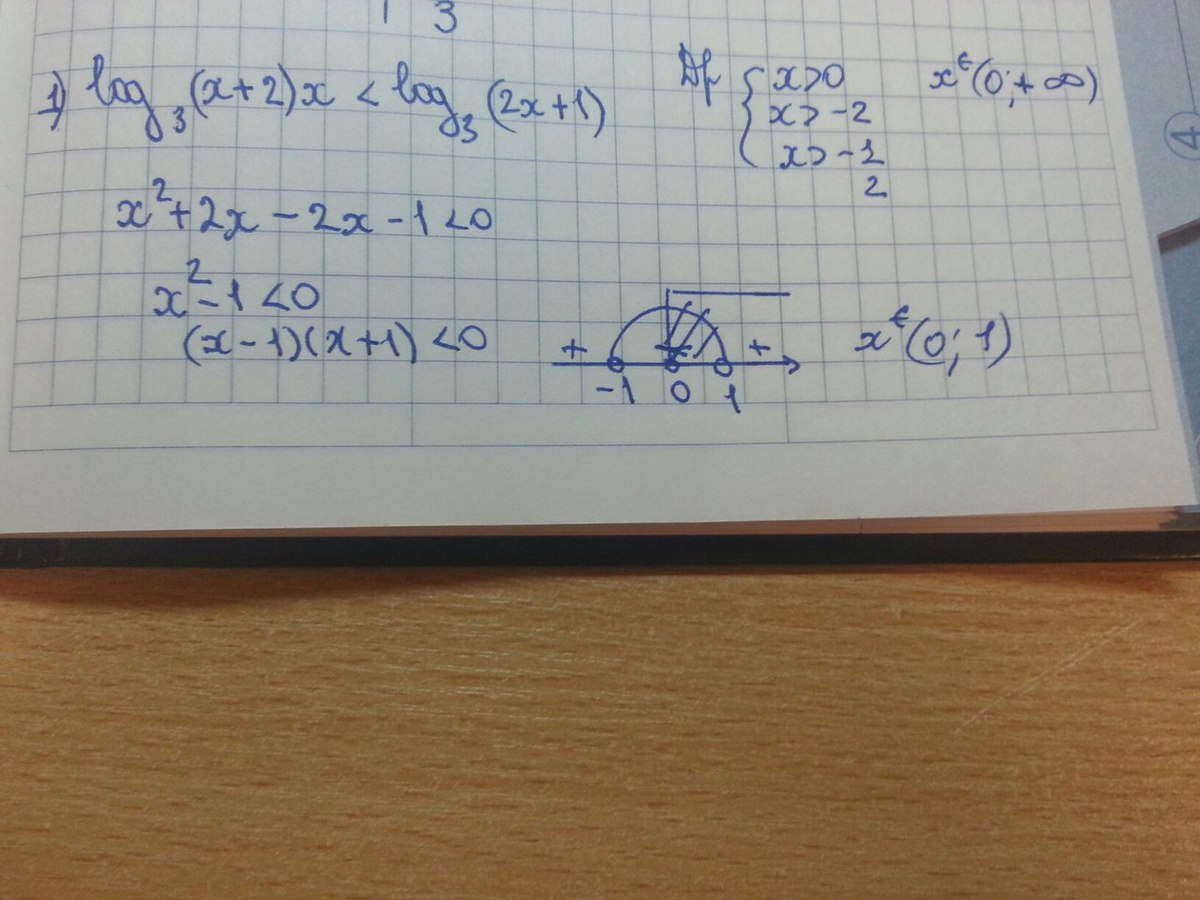 3
1) log₃(x+2)x < log₃(2x+1)
Df { x>0
x>-2
x>-1
2
x∈(0;+∞)
4
x²+2x-2x-1<0
x²-1<0
(x-1)(x+1)<0
+ - +
-1 0 1
x∈(0; 1)